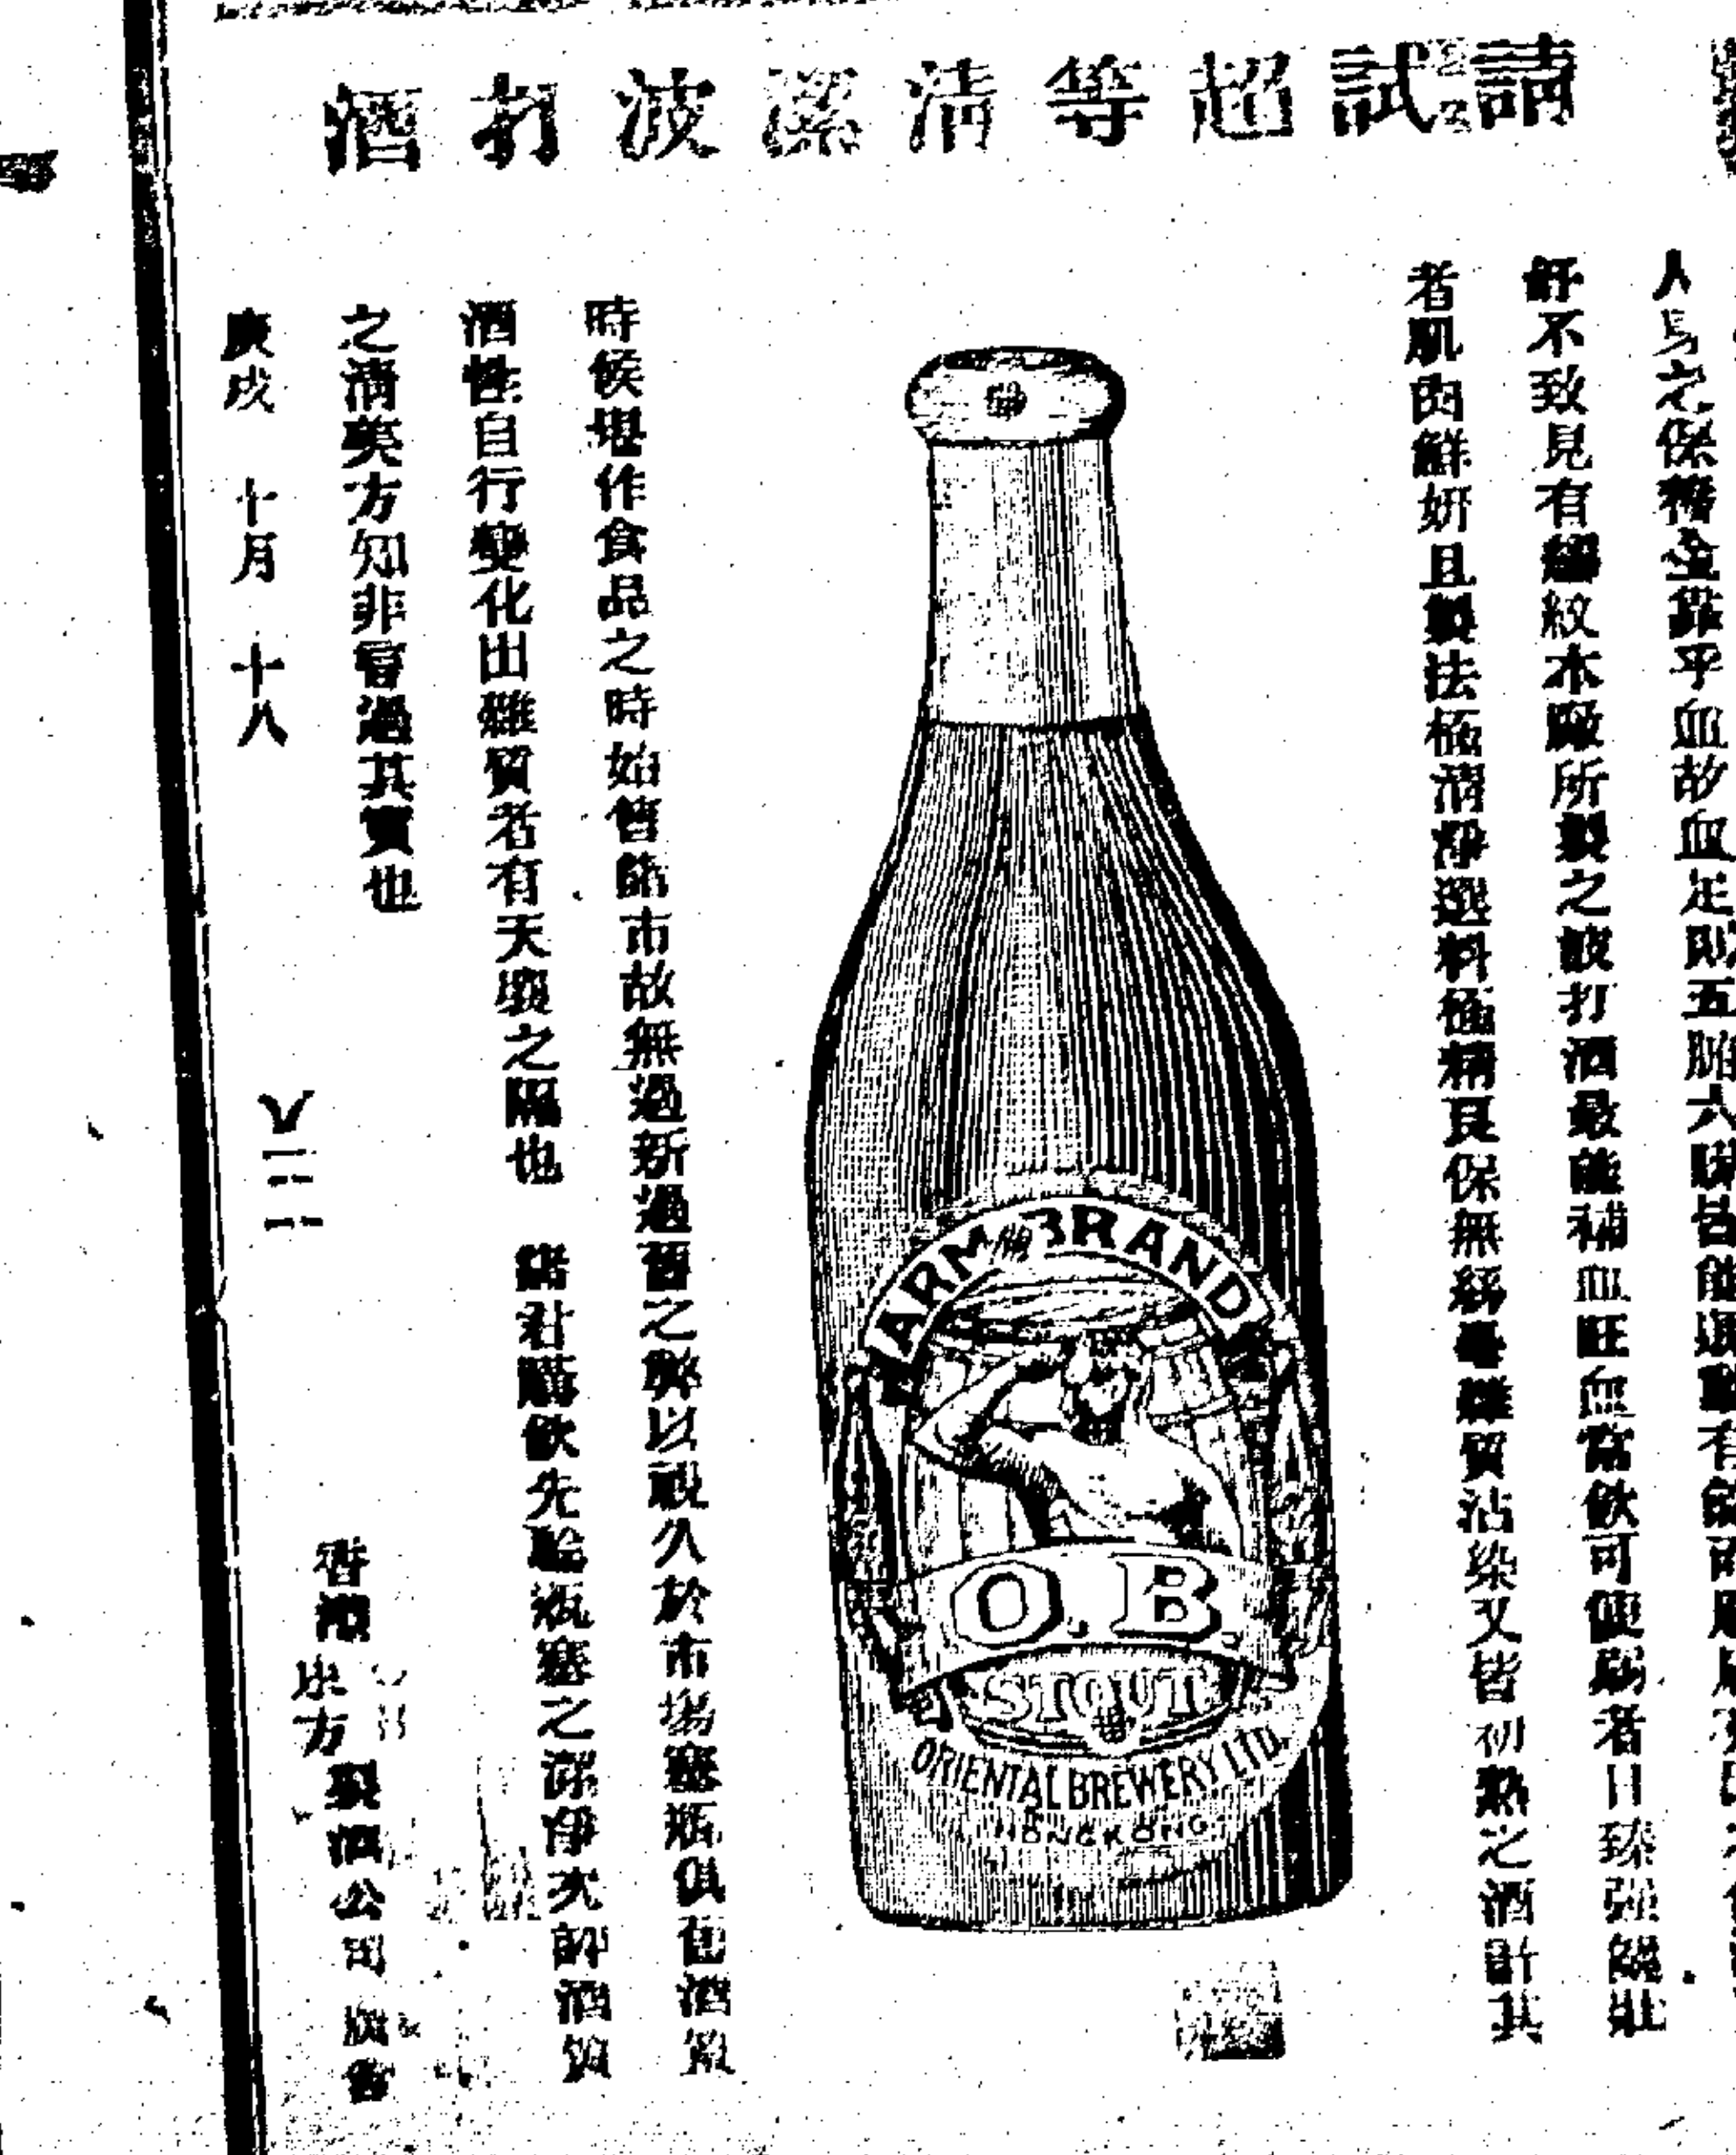 請試超等清潔波打酒
人身之保養全靠乎血故血足則五臟六腑皆能運動有
舒不致見有縐紋本廠所製之波打酒最能補血旺血常飲可使弱者日臻強體壯
者肌肉鮮妍且製法極清淨選料極精良保無絲毫雜質沾染又皆初熟之酒計其
ARM BRAND
O.B.
STOUT
ORIENTAL BREWERY LTD.
HONGKONG
時候堪作食品之時始售諸市故無過新過舊之弊以視久於市場塞瓶俱舊酒質
酒性自行變化出雜質者有天壤之隔也 諸君購飲先驗瓶塞之潔淨次評酒質
之清美方知非嘗過其實也
香港東方製酒公司廣告
庚戌 十月 十八